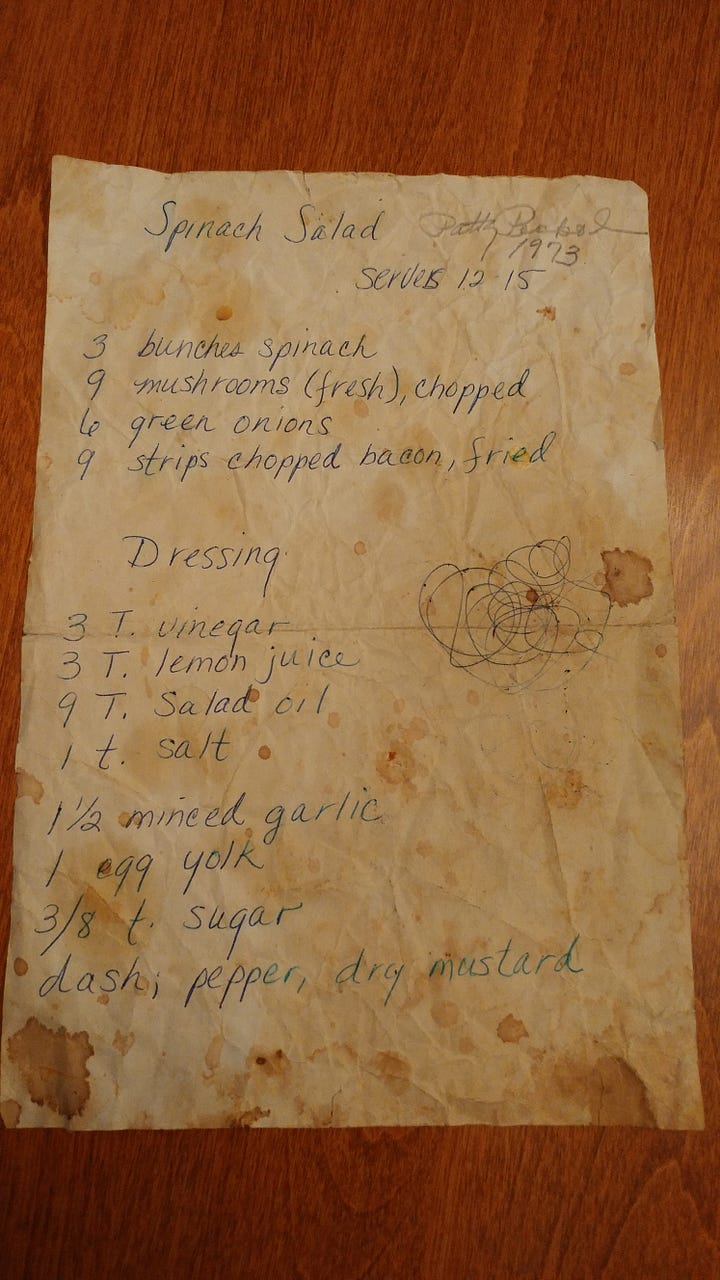 Spinach Salad Patty
1973
Serves 12-15
3 bunches spinach
9 mushrooms (fresh), chopped
6 green onions
9 strips chopped bacon, fried
Dressing
3 T. vinegar
3 T. lemon juice
9 T. Salad oil
1 t. salt
1 1/2 minced garlic
1 egg yolk
3/8 t. sugar
dash; pepper, dry mustard